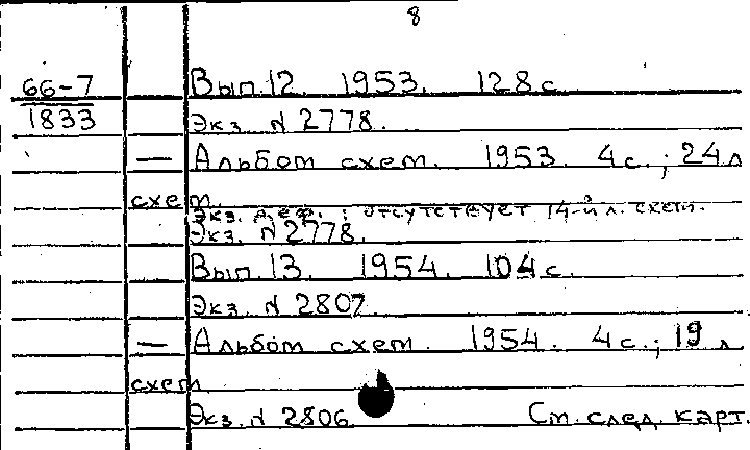 8
66-7 Вып.12. 1953. 128с.
1833 Экз. N 2778.
— Альбом схем. 1953. 4с.; 24л.
схем.
Экз. деф.: отсутствует 14-й л. схем.
Экз. N 2778.
Вып.13. 1954. 104с.
Экз. N 2807.
— Альбом схем. 1954. 4с.; 19 л.
схем
Экз. N 2806 См. след. карт.